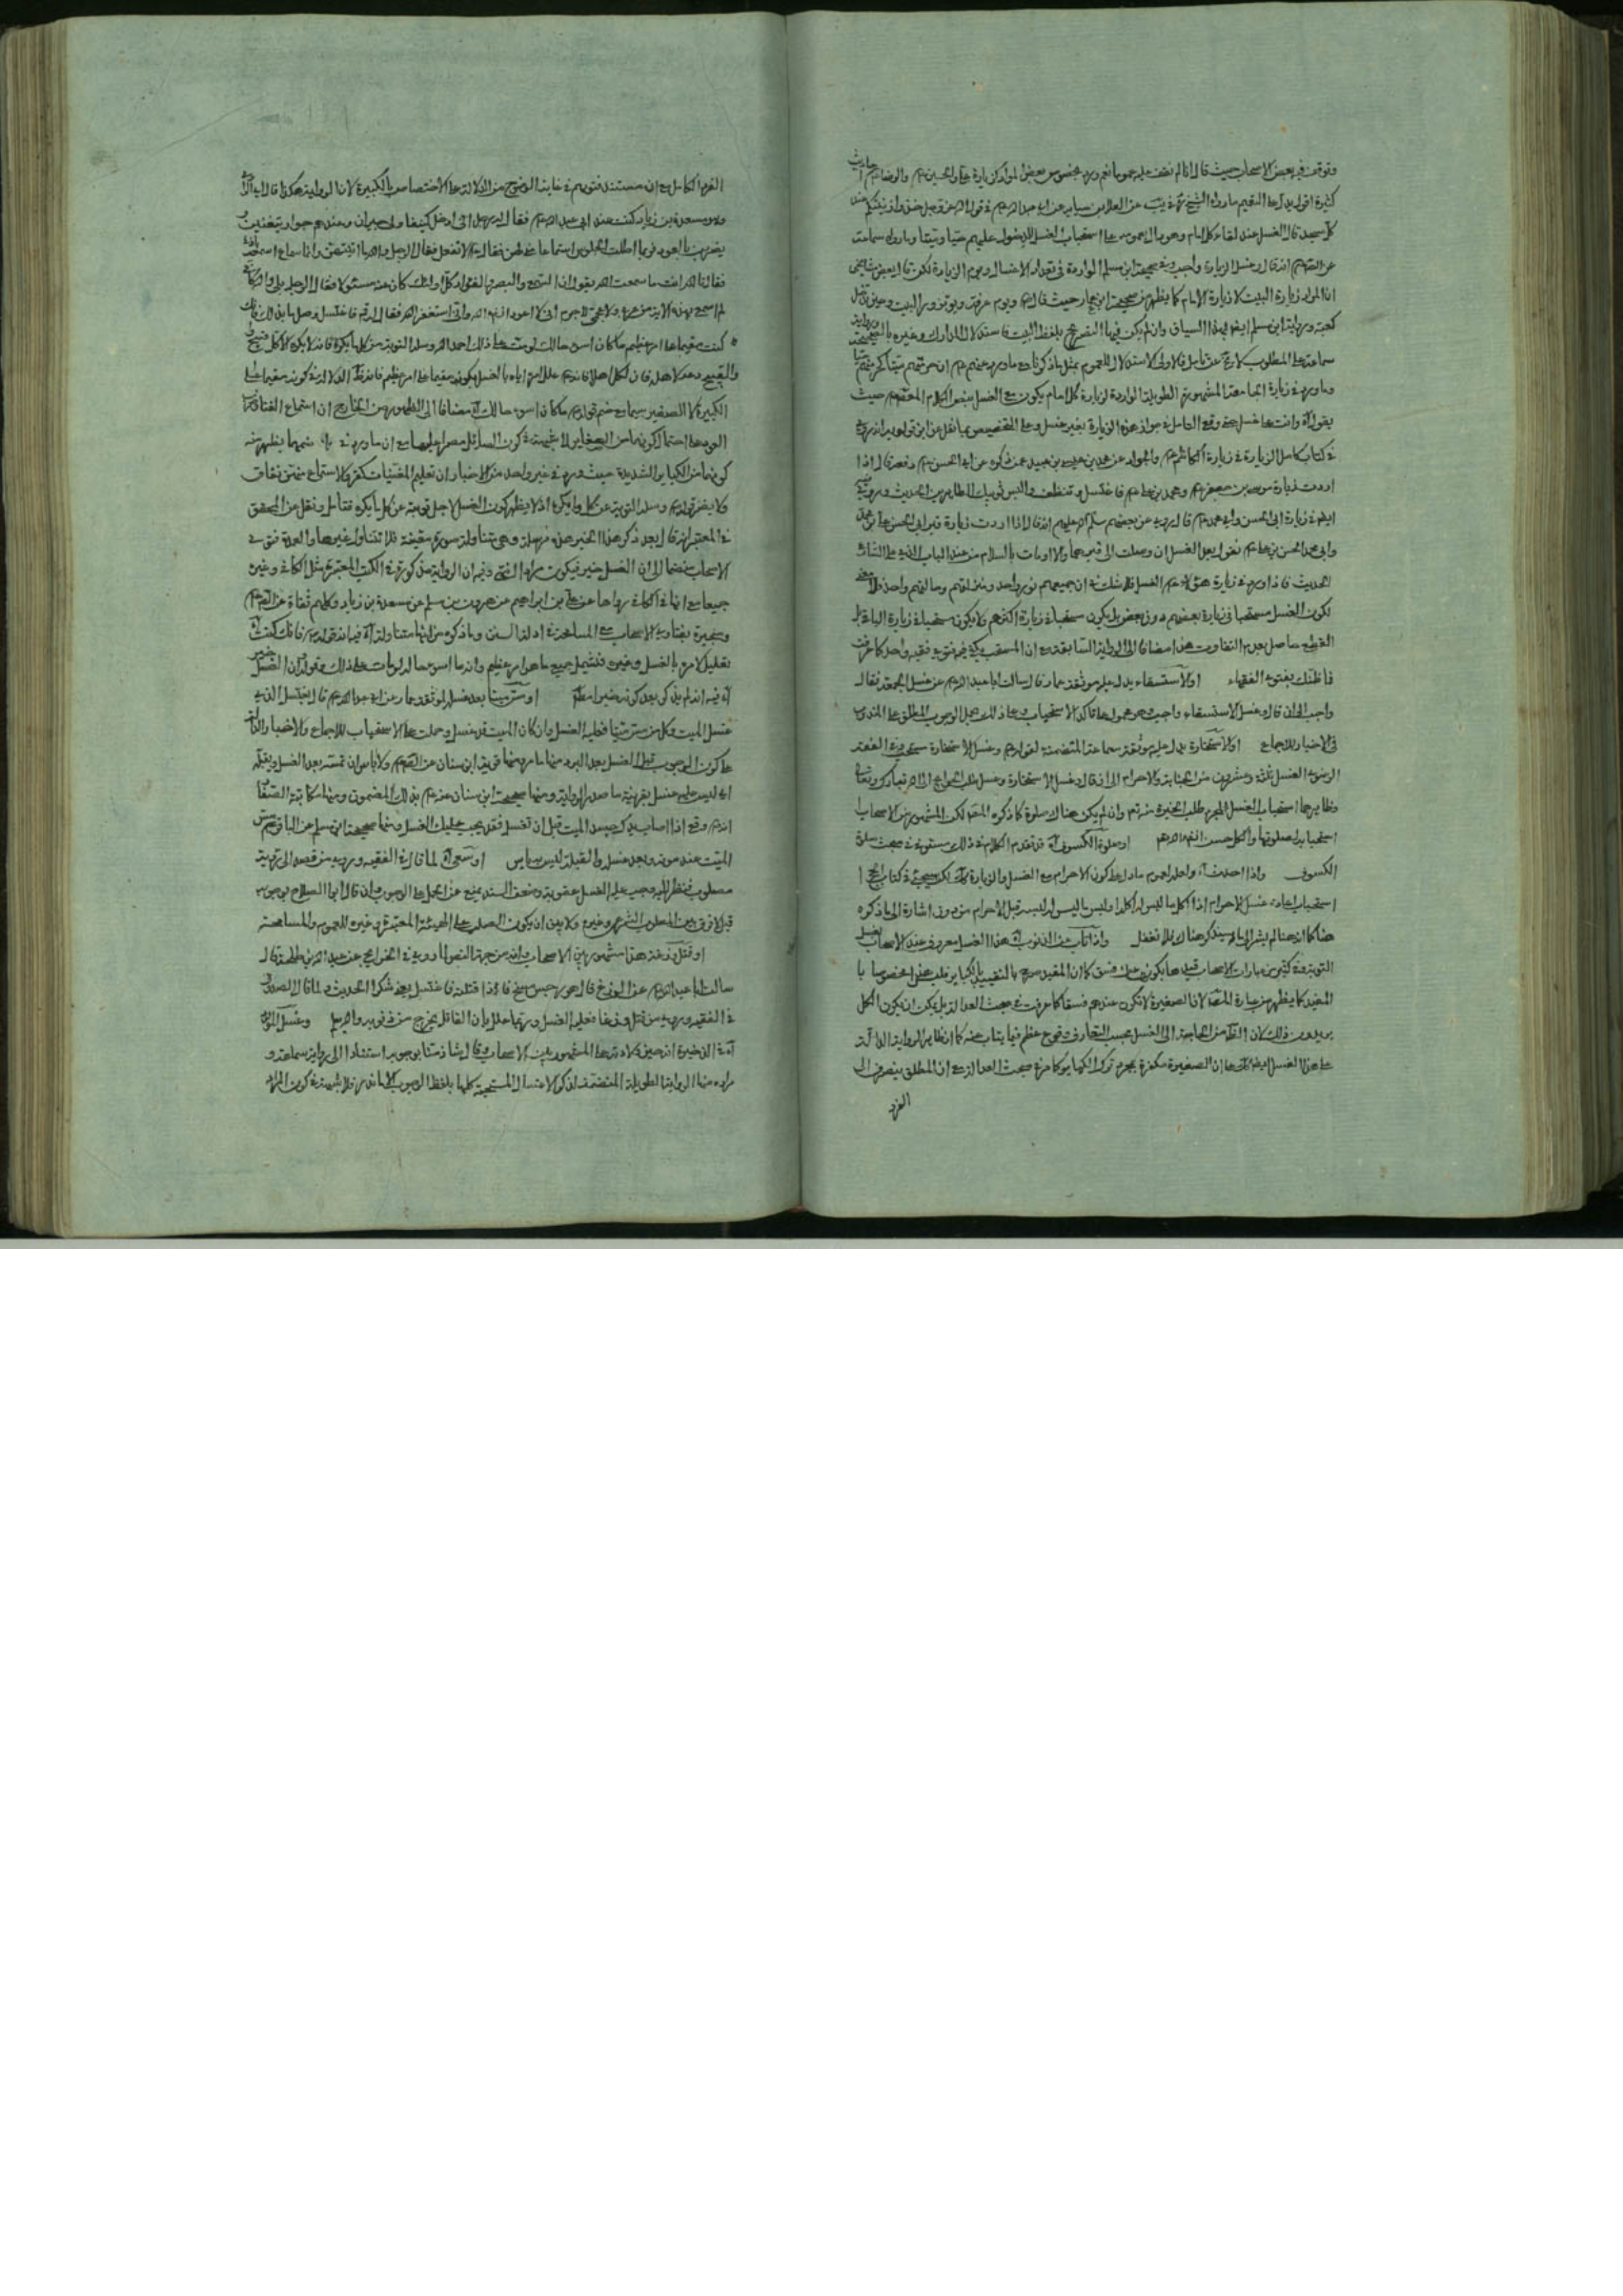 وتوقف فيه بعض الاصحاب حيث قال انا لم نقف عليه عموما نعم ورد بخصوص بعض الموارد كزيارة علي والحسين عم والرضا عم احاديث
كثيرة اقول يدل على التعميم ما رواه الشيخ في يب عن العلا بن سيابه عن ابي عبد الله عم في قوله عز وجل خذوا زينتكم عند
كل مسجد قال الغسل عند لقاء كل امام وهو دال بعمومه على استحباب الغسل للدخول عليهم حيا وميتا وما رواه سماعة
عن الصادق عم انه قال وغسل الزيارة واجب وفي صحيحة ابن مسلم الواردة في تعداد الاغسال ويوم الزيارة لكن قال بعض
ان المراد زيارة البيت لا زيارة الامام كما يظهر من صحيحة ابن عمار حيث قال عم ويوم عرفة ويوم تزور البيت وحين تدخل
كعبة ورواية ابن مسلم ايضا بهذا السياق وان لم يكن فيها التصريح بلفظ البيت فاستدلال المدارك وغيره بالصحيحة ورواية
سماعة على المطلوب لا يخ عن تامل فالاولى الاستدلال للعموم بمثل ما ذكرنا مع ما ورد عنهم عم ان حرمتهم ميتا كحرمتهم حيا
وما ورد في زيارة الجامعة المشهورة الطويلة الواردة لزيارة كل امام يكون مع الغسل
يقول وانت على غسل وقع التامل في جواز هذه الزيارة بغير غسل وعلى الخصوص بما نقل عن ابن قولويه انه روى
في كتاب كامل الزيارة في زيارة الكاظم عم والجواد عن محمد بن عيسى بن عبيد عمن ذكره عن ابي الحسن عم قال اذا
اردت زيارة موسى بن جعفر عم ومحمد بن علي عم فاغتسل وتنظف والبس ثوبيك الطاهرين الحديث وروى
ايضا في زيارة ابي الحسن وابي محمد عم قال يروى عن بعضهم سلام الله عليهم انه قال اذا اردت زيارة قبر ابي الحسن علي بن محمد
وابي محمد الحسن بن علي عم تقول بعد الغسل ان وصلت الى قبريهما والا اومات بالسلام من عند الباب الذي على الشارع
الحديث فاذا ورد في زيارة هؤلاء عم الغسل فلا شك في ان جميعهم نور واحد ومنزلتهم وحالتهم واحد فلا معنى
لكون الغسل مستحبا في زيارة بعضهم دون بعض بل يكون مستحبا في زيارة اكثرهم ولا يكون مستحبا في زيارة الباقي بل
القطع حاصل بعدم التفاوت هذا مضافا الى الرواية السابقة مع ان المستحب يكفيه فتوى فقيه واحد كما عرفت
فما ظنك بفتوى الفقهاء او لاستسقاء يدل عليه موثقة عمار قال سالت ابا عبد الله عم عن غسل الجمعة فقال
واجب الى ان قال وغسل الاستسقاء واجب وهو محمول على تاكد الاستحباب وعلى ذلك يحمل الوجوب المطلق على المندوب
في الاخبار للاجماع او لاستخارة يدل عليه موثقة سماعة المتضمنة لقوله عم وغسل الاستخارة مستحب وفي الفقه
الرضوي الغسل ثلثة وعشرون من الجنابة والاحرام الى ان قال وغسل الاستخارة وغسل طلب الحوائج الى الله تبارك وتعالى
وظاهرهما استحباب الغسل لمجرد طلب الخيرة منه تعالى وان لم يكن هناك صلوة كما ذكره المص لكن المشهور بين الاصحاب
استحبابه لصلوتها والكل حسن انشاء الله تعالى او صلوة الكسوف قد تقدم الكلام في ذلك مستوفى في مبحث صلوة
الكسوف واذا احدث اه واحد لعموم ما دل على كون الاحرام مع الغسل والزيارة كذلك لكن سيجئ في كتاب الحج
استحباب اعادة غسل الاحرام اذا اكل ما ليس له اكله او لبس ما ليس له لبسه قبل الاحرام من دون اشارة الى ما ذكره
هنا كما انه هنا لم يشر الى ما سيذكره هناك فلا تغفل واذا تاب من الذنوب اه هذا الغسل معروف عند الاصحاب بغسل
التوبة وفي كثير من عبارات الاصحاب قيدها بكونها عن فسق كما ان المفيد صرح بالتقييد بالكبائر
المفيد كما يظهر من عبارة المص لان الصغيرة لا تكون عندهم فسقا كما عرفت في مبحث العدالة بل يمكن ان يكون الكل
يريدون ذلك لان الظاهر من الحاجة الى الغسل بحسب المتعارف وقوع عظم فيما يتاب عنه كما ان ظاهر الرواية الدالة
على هذا الغسل ايضا كذلك مع ان الصغيرة مكفرة بمجرد ترك الكبائر كما مر في مبحث العدالة مع ان المطلق ينصرف الى
الفرد
الفرد الكامل مع ان مستند فتويهم في غاية الوضوح من الدلالة على الاختصاص بالكبيرة لان الرواية هكذا قال
روى مسعدة بن زياد كنت عند ابي عبد الله عم فقال له رجل اني ادخل كنيفا ولي جيران وعندهم جوار يتغنين و
يضربن بالعود فربما اطلت الجلوس استماعا مني لهن فقال له لا تفعل فقال الرجل والله ما اتيتهن وانما هو سماع اسمعه باذني
فقال لله انت ما سمعت الله يقول ان السمع والبصر والفؤاد كل اولئك كان عنه مسئولا فقال الرجل بلى والله كاني
لم اسمع بهذه الاية من عربي ولا عجمي لا جرم اني لا اعود انشاء الله واني استغفر الله فقال له قم فاغتسل وصل ما بدا لك فانك
كنت مقيما على امر عظيم ما كان اسوء حالك لو مت على ذلك احمد الله وسله التوبة من كل ما يكره فانه لا يكره الا كل قبيح
والقبيح دعه لاهله فان لكل اهلا فانه عم علل امره اياه بالغسل بكونه مقيما على امر عظيم فانه ظاهر الدلالة في كونه مقيما على
الكبيرة لا الصغيرة سيما مع ضم قوله عم ما كان اسوء حالك اه مضافا الى الظهور من الخارج ان استماع الغناء
العود على احتمال كونهما من الصغاير لا شبهة في كون السائل مصرا عليها مع ان ما ورد في ضمها يظهر منه
كونهما من الكبائر الشديدة حيث ورد في غير واحد من الاخبار ان تعليم المغنيات كفر والاستماع منهن نفاق
ولا يضر قوله عم وسله التوبة عن كل ما يكره اذ لا يظهر كون الغسل لاجل توبته عن كل ما يكره فتامل ونقل عن المحقق
في المعتبر انه قال بعد ذكر هذا الخبر هذه مرسلة وهي متناولة صورة معينة فلا تتناول غيرها والعمدة فتوى
الاصحاب منضما الى ان الغسل خير فيكون مرادا انتهى وفيه ان الرواية مذكورة في الكتب المعتبرة مثل الكافي وغيره
جميعا مع انها في الكافي رواها عن علي بن ابراهيم عن هرون بن مسلم عن مسعدة بن زياد وكلهم ثقاة عن الصادق عم
ومنجبرة بفتاوى الاصحاب مع المسامحة في ادلة السنن وما ذكره من انها متناولة اه فيه انه قوله عم فانك كنت اه
تعليل لامره بالغسل وغيره فتشمل جميع ما هو امر عظيم وانه ما اسوء حاله لو مات على ذلك وقوله ان الغسل خير
اه فيه انه لم يذكر بعد كونه خيرا مطلقا او مس ميتا بعد غسله لموثقة عمار عن ابي عبد الله عم قال يغتسل الذي
غسل الميت وكل من مس ميتا فعليه الغسل وان كان الميت قد غسل وحملت على الاستحباب للاجماع والاخبار الدالة
على كون الوجوب قبل الغسل بعد البرد منها ما مر ومنها قوية ابن سنان عن الصادق عم ولا باس ان تمسه بعد الغسل وتقبله
اي ليس عليه غسل بقرينة صدر الرواية ومنها صحيحة ابن سنان عنه عم بذلك المضمون ومنها مكاتبة الصفار
اليه عم وقع اذا اصاب يدك جسد الميت قبل ان تغسل فقد يجب عليك الغسل ومنها صحيحة ابن مسلم عن الباقر عم مس
الميت عند موته وبعد غسله والقبلة ليس به باس او سعى اه لما قال في الفقيه وروى من قصد الى رؤية
مصلوب فنظر اليه وجب عليه الغسل عقوبة وضعف السند يمنع عن الحمل على الوجوب وان قال ابو الصلاح بوجوبه
قيل لا فرق بين المصلوب الشرعي وغيره ولا بين ان يكون الصلب على الهيئة المعتبرة وغيره للعموم والمسامحة
او قتل وزغة هذا مشهور بين الاصحاب وانه من جهة النص المروية في الخرايج عن عبد الله بن طلحة قال
سالت ابا عبد الله عم عن الوزغ قال هو رجس مسخ فاذا قتلته فاغتسل يعني شكرا الحديث ولما قال الصدوق
في الفقيه وروى من قتل وزغا فعليه الغسل وربما علل بان القاتل يخرج من ذنوبه والله يعلم وغسل المولود
اه في الذخيرة انه حين الولادة على المشهور بين الاصحاب وقال شاذ منا بوجوبه استنادا الى رواية سماعة و
مراده منها الرواية الطويلة المتضمنة لذكر الاغسال المستحبة كلها بلفظ الوجوب الا ما ندر فلا شبهة في كون المراد